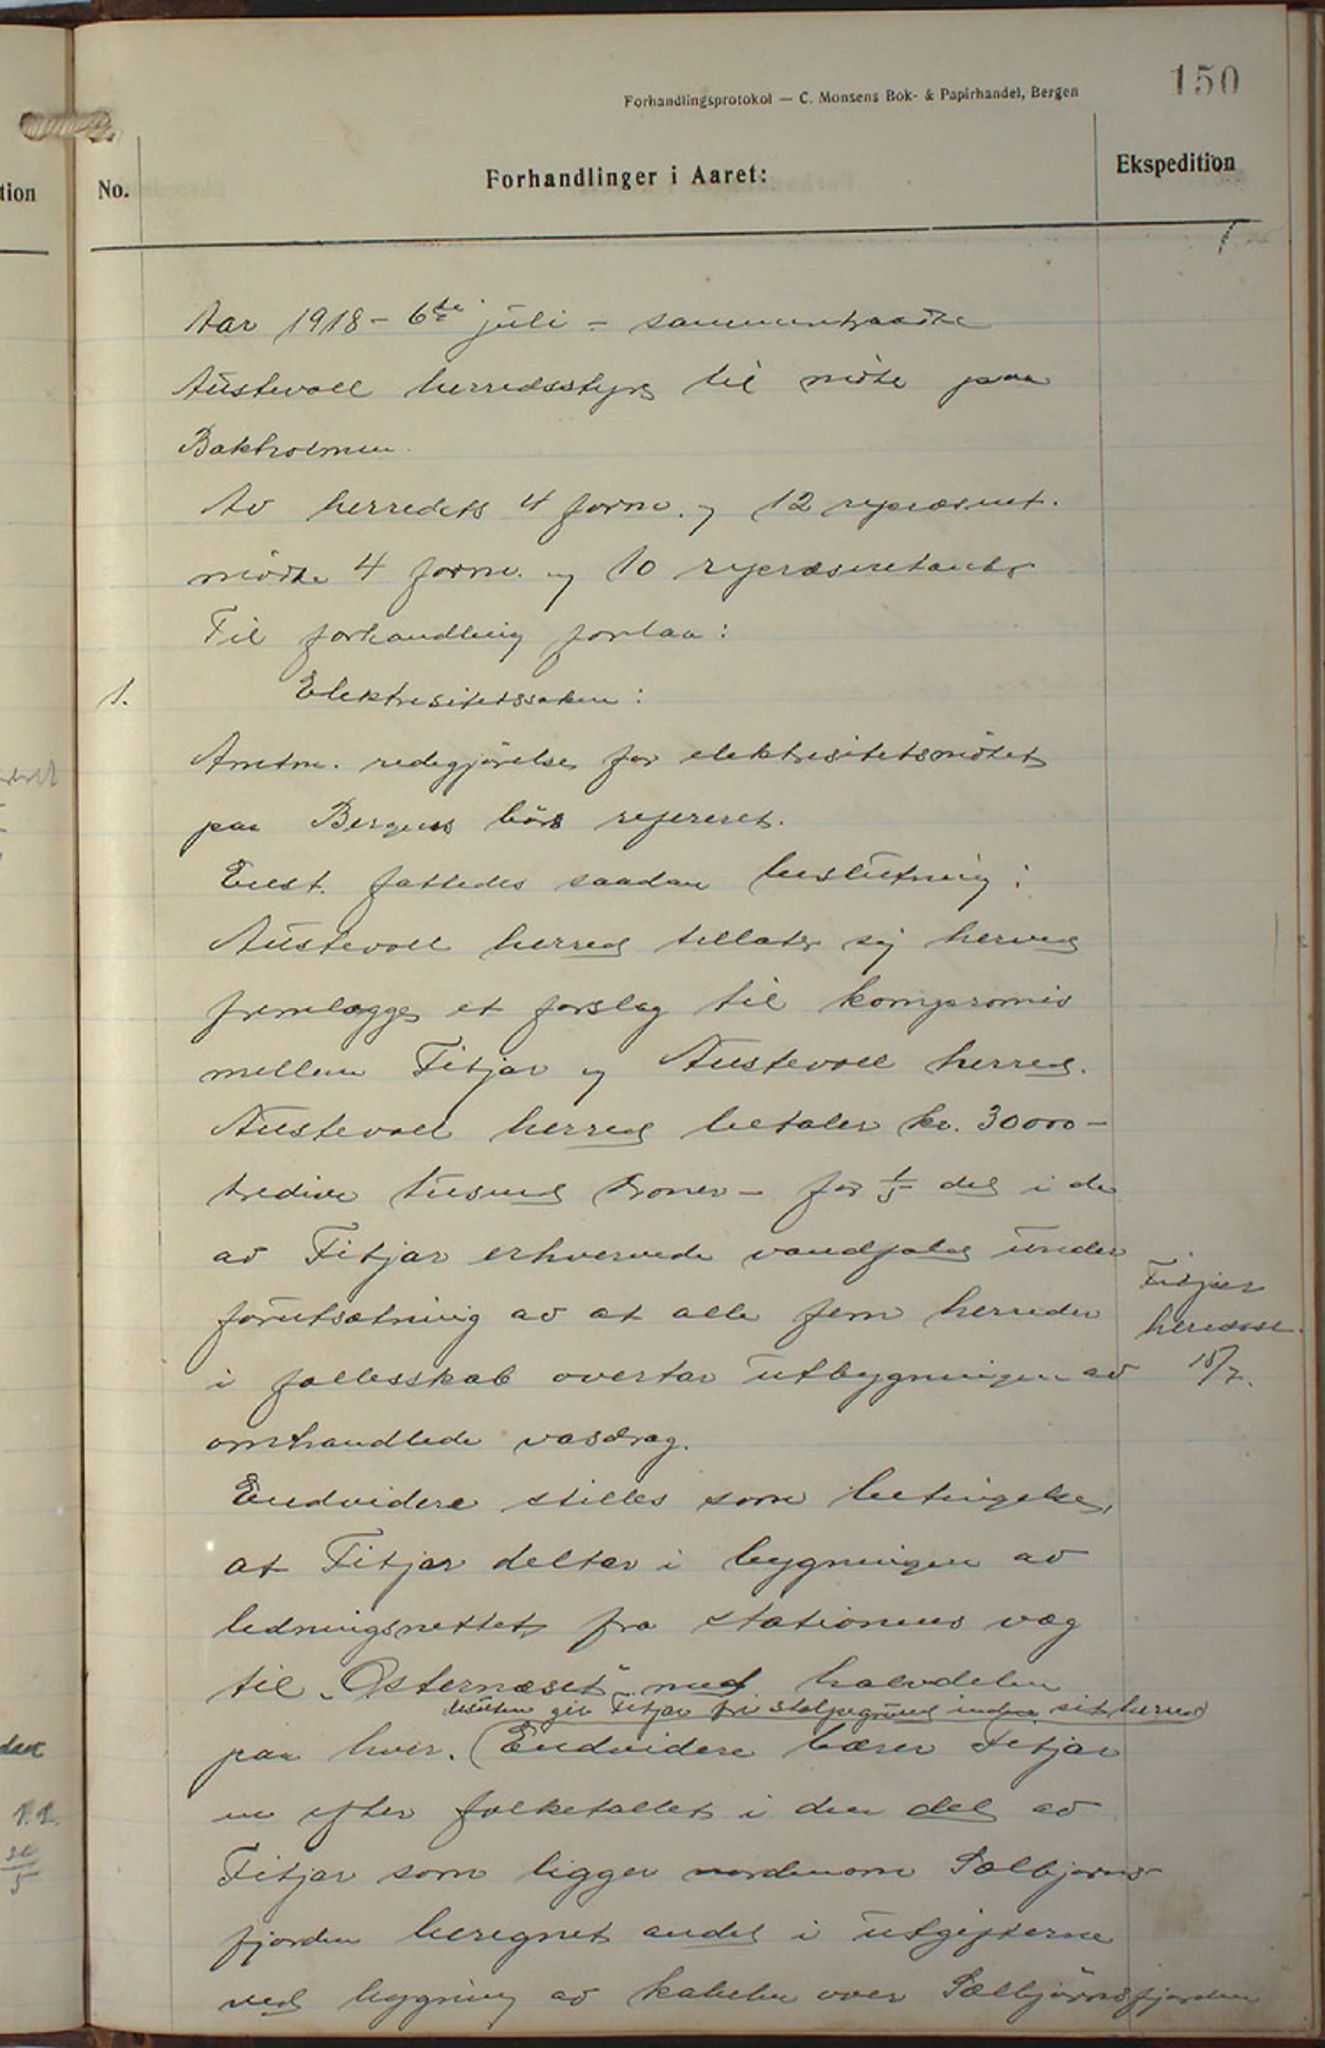 150
Forhandlingsprotokol — C. Monsens Bok- & Papirhandel, Bergen
tion
No.
Forhandlinger i Aaret:
Ekspedition
Aar 1918 - 6te juli - sammentraadte
Austevoll herredsstyre til møte paa
Bakholmen.
Av herredets 4 form. og 12 repræsent.
møtte 4 form. og 10 repræsentanter
Til forhandling forelaa:
1. Elektrisitetssaken:
Amtm. redegjørelse for elektrisitetsmøtet
paa Bergens børs refereret.
Enst. fattedes saadan beslutning:
Austevoll herred tillater sig herved
fremlægge et forslag til kompromis
mellem Fitjar og Austevoll herred.
Austevoll herred betaler kr. 30000 -
tredive tusend kroner - for 1/5 del i de
av Fitjar erhvervede vandfald under
forutsætning av at alle fem herreder
i fællesskab overtar utbygningen av
omhandlede vasdrag.
Fitjar
heredsst.
15/7.
Endvidere stilles som betingelse,
at Fitjar deltar i bygningen av
ledningsnettet fra stationens væg
til "Osternæset" med halvdelen
desuten gir Fitjar fri stolpegrund inden sit herred
paa hver. (Endvidere bærer Fitjar
en efter folketallet i den del av
Fitjar som ligger nordenom Sælbjørns-
fjorden beregnet andel i utgifterne
ved bygning av kabelen over Sælbjørnsfjorden